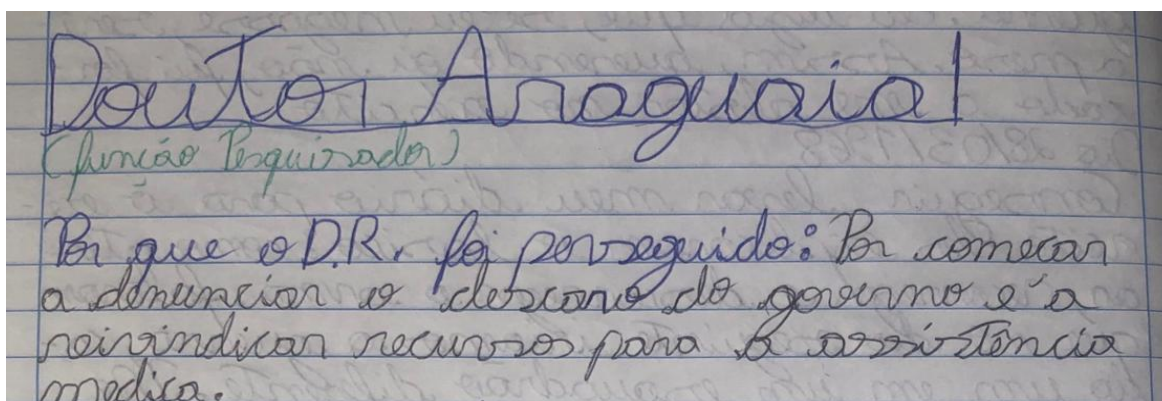 Doutor Araguaia!
(função Pesquisador)
Por que o D.R. foi perseguido: Por começar
a denunciar o descaso do governo e a
reivindicar recursos para a assistência
medica.